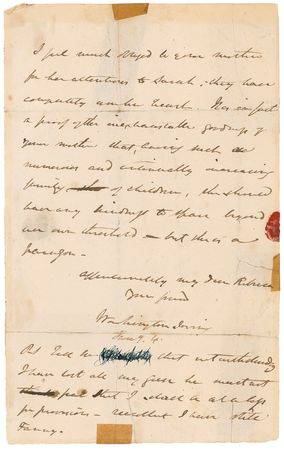 I feel much obliged to your mother
for her attentions to Sarah; they have
completely won her heart. It is in fact
a proof of the inexhaustible goodness of
your mother that, having such a
numerous and continually increasing
family of children, she should
have any kindness to spare beyond
her own threshold — but she is a
paragon —
Affectionately my dear Rebecca
Your friend
Washington Irving
PS Tell that notwithstanding
I have lost all my geese he must not
that I shall be at a loss
for provisions — I have still
Fanny.